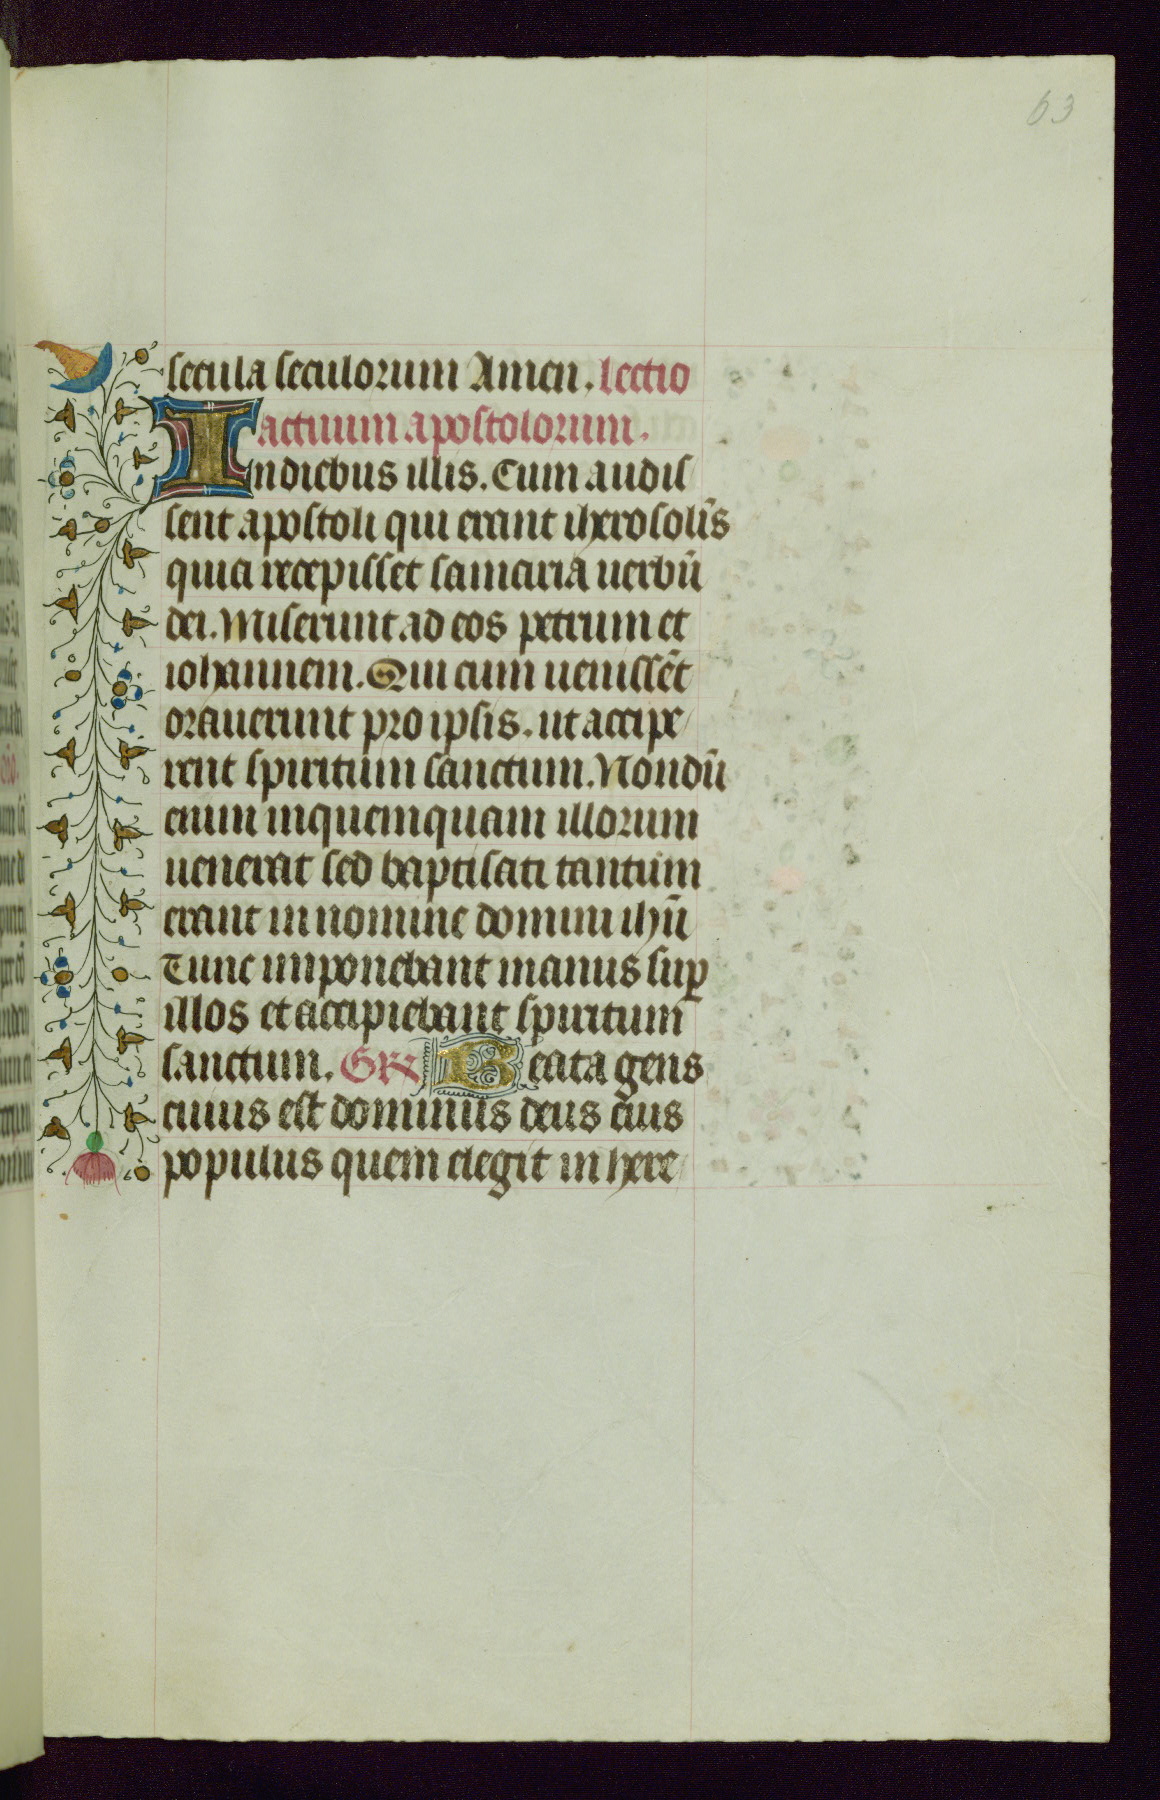 63
secula seculorum Amen. lectio
actuum apostolorum.
In diebus illis. Cum audis
sent apostoli qui erant iherosolīs
quia recepisset samaria uerbū
dei. Miserunt ad eos petrum et
iohannem. Qui cum uenissēt
orauerunt pro ipsis. ut accipe
rent spiritum sanctum. Nondū
enim inquemquam illorum
uenerat sed baptisati tantum
erant in nomine domini ihū
Tunc imponebant manus suꝑ
illos et accipiebant spiritum
sanctum. Gr Beata gens
cuius est dominus deus eius
populus quem elegit in here